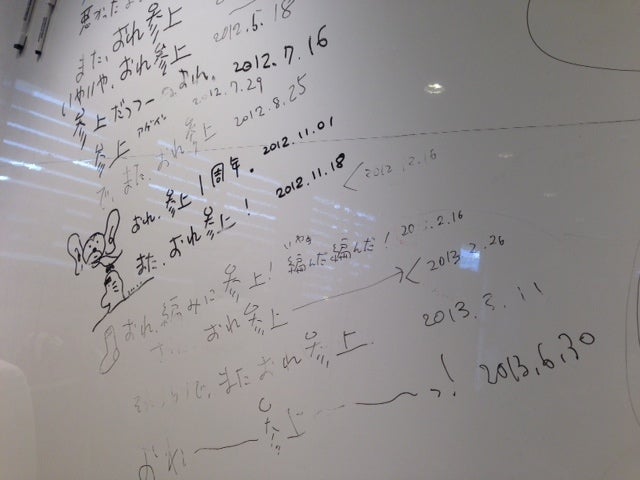 悪かったな
また、おれ参上 2012.6.18
いやいや、おれ参上
参上だっつーの おれ。 2012.7.16
参上 アゲイン 2012.7.29
で、また、おれ参上 2012.8.25
おれ、参上1周年。 2012.11.01
また、おれ参上! 2012.11.18
2012.2.16
おれ、編みに参上! いやぁ 編んだ編んだ! 2.16
おれ参上 2013.2.26
で、またおれ参上. 2013.3.11
おれ——参上——っ! 2013.6.30